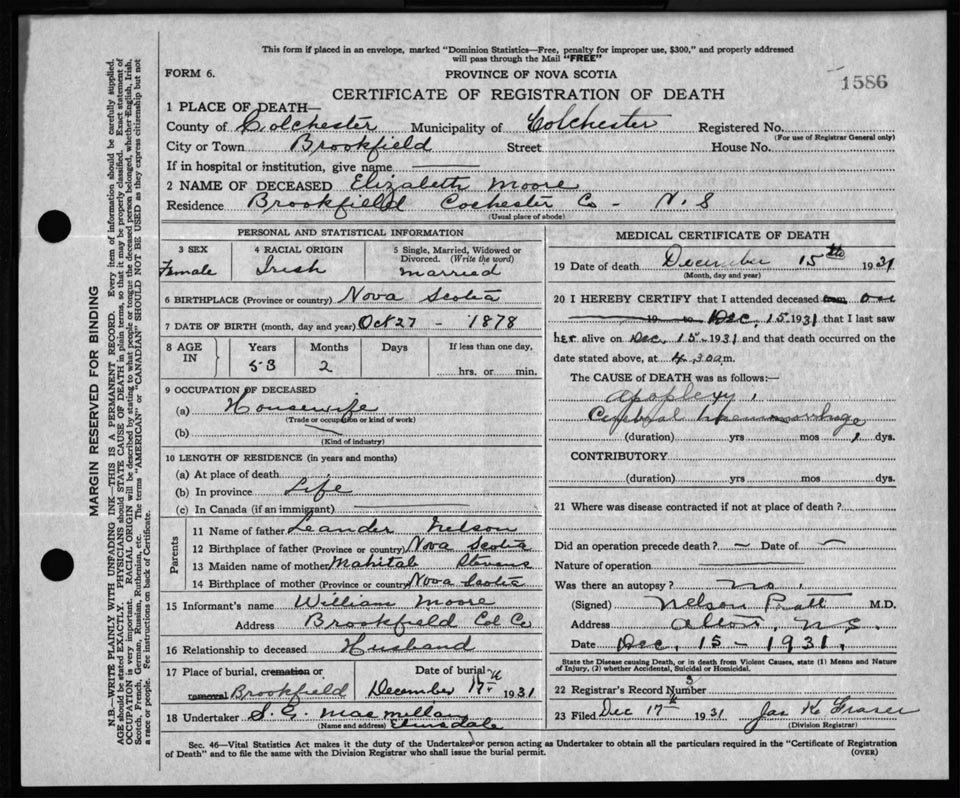 This form if placed in an envelope, marked "Dominion Statistics—Free, penalty for improper use, $300," and properly addressed
will pass through the Mail "FREE"
FORM 6.
PROVINCE OF NOVA SCOTIA
1586
CERTIFICATE OF REGISTRATION OF DEATH
1 PLACE OF DEATH—
County of Colchester Municipality of Colchester Registered No.
(For use of Registrar General only)
City or Town Brookfield Street House No.
If in hospital or institution, give name
2 NAME OF DECEASED Elizabeth Moore
Residence Brookfield Cochester Co - N.S
(Usual place of abode)
PERSONAL AND STATISTICAL INFORMATION
3 SEX
Female
4 RACIAL ORIGIN
Irish
5 Single, Married, Widowed or
Divorced. (Write the word)
married
6 BIRTHPLACE (Province or country) Nova Scotia
7 DATE OF BIRTH (month, day and year) Oct 27 - 1878
8 AGE
IN
Years
53
Months
2
Days
If less than one day,
hrs. or min.
9 OCCUPATION OF DECEASED
(a) Housewife
(Trade or occupation or kind of work)
(b)
(Kind of industry)
10 LENGTH OF RESIDENCE (in years and months)
(a) At place of death
(b) In province Life
(c) In Canada (if an immigrant)
Parents
11 Name of father Leander Nelson
12 Birthplace of father (Province or country) Nova Scotia
13 Maiden name of mother Mahitab Stevens
14 Birthplace of mother (Province or country) Nova Scotia
15 Informant's name William Moore
Address Brookfield Col Co
16 Relationship to deceased Husband
17 Place of burial, cremation or
removal Brookfield
Date of burial
December 17th 1931
18 Undertaker S. E. MacMillan
(Name and address)
MEDICAL CERTIFICATE OF DEATH
19 Date of death December 15th 1931
(Month, day and year)
20 I HEREBY CERTIFY that I attended deceased from on
19 to Dec, 15 1931 that I last saw
her alive on Dec, 15 - 1931 and that death occurred on the
date stated above, at 4.30 a.m.
The CAUSE OF DEATH was as follows:—
Apoplexy,
Cerebral haemorrhage
(duration) yrs mos 1 dys.
CONTRIBUTORY
(duration) yrs mos dys.
21 Where was disease contracted if not at place of death?
Did an operation precede death? — Date of —
Nature of operation
Was there an autopsy? no.
(Signed) Nelson Pratt M.D.
Address N.S.
Date Dec, 15 - 1931,
State the Disease causing Death, or in death from Violent Causes, state (1) Means and Nature
of Injury, (2) whether Accidental, Suicidal or Homicidal.
22 Registrar's Record Number 3
23 Filed Dec 17th 1931 Jas H Fraser
(Division Registrar)
Sec. 46—Vital Statistics Act makes it the duty of the Undertaker or person acting as Undertaker to obtain all the particulars required in the "Certificate of Registration
of Death" and to file the same with the Division Registrar who shall issue the burial permit.
(OVER)
MARGIN RESERVED FOR BINDING
N.B.—WRITE PLAINLY WITH UNFADING INK—THIS IS A PERMANENT RECORD. Every item of information should be carefully supplied.
AGE should be stated EXACTLY. PHYSICIANS should STATE CAUSE OF DEATH in plain terms, so that it may be properly classified. Exact statement of
OCCUPATION is very important. RACIAL ORIGIN will be described by stating to what people or tongue the deceased person belonged, whether English, Irish,
Scotch, French, German, Russian, Ruthenian, etc. The terms "AMERICAN" or "CANADIAN" SHOULD NOT BE USED as they express citizenship but not
a race or people. See instructions on back of Certificate.